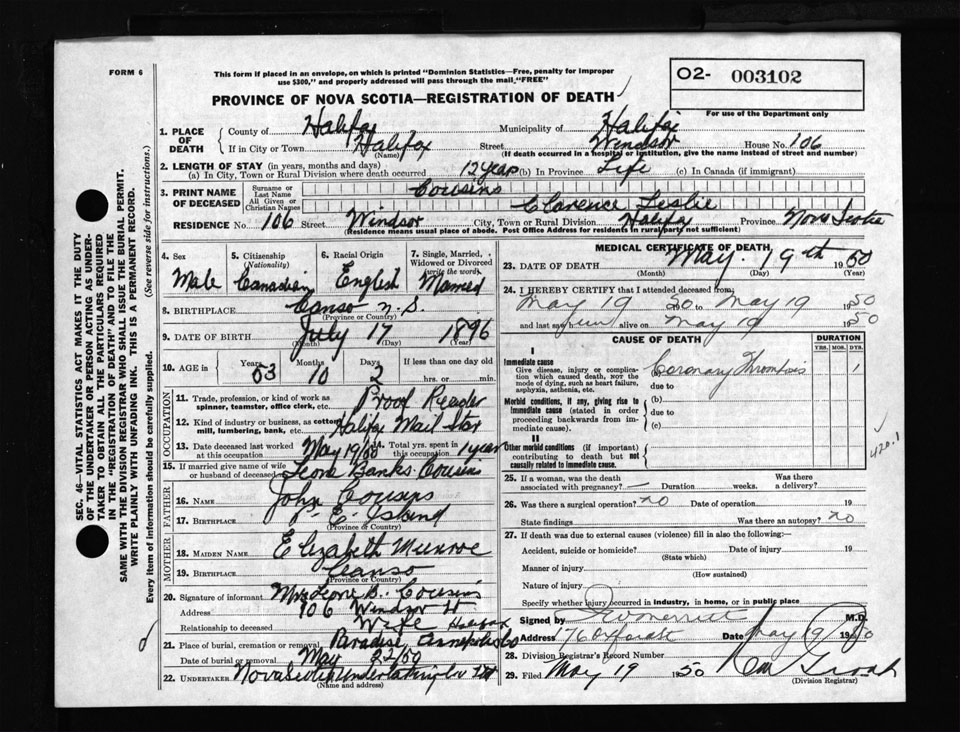 FORM 6
This form if placed in an envelope, on which is printed "Dominion Statistics—Free, penalty for improper
use $300," and properly addressed will pass through the mail "FREE"
O2- 003102
For use of the Department only
PROVINCE OF NOVA SCOTIA—REGISTRATION OF DEATH
1. PLACE OF DEATH
County of Halifax Municipality of Halifax
If in City or Town Halifax Street Windsor House No. 106
(Name) (If death occurred in a hospital or institution, give the name instead of street and number)
2. LENGTH OF STAY (in years, months and days)
(a) In City, Town or Rural Division where death occurred 12 years (b) In Province Life (c) In Canada (if immigrant)
3. PRINT NAME OF DECEASED
Surname or Last Name Cousins
All Given or Christian Names Clarence Leslie
RESIDENCE No. 106 Street Windsor City, Town or Rural Division Halifax Province Nova Scotia
(Residence means usual place of abode. Post Office Address for residents in rural parts not sufficient)
4. Sex 5. Citizenship (Nationality) 6. Racial Origin 7. Single, Married, Widowed or Divorced (write the word)
Male Canadian English Married
8. BIRTHPLACE Canso N.S.
(Province or Country)
9. DATE OF BIRTH July 17 1896
(Month) (Day) (Year)
10. AGE in Years Months Days If less than one day old
53 10 2 hrs. or min.
OCCUPATION
11. Trade, profession, or kind of work as spinner, teamster, office clerk, etc. Proof Reader
12. Kind of industry or business, as cotton mill, lumbering, bank, etc. Halifax Mail Star
13. Date deceased last worked at this occupation May 19/50 14. Total yrs. spent in this occupation 1 year
15. If married give name of wife or husband of deceased Leone Banks Cousins
FATHER
16. NAME John Cousins
17. BIRTHPLACE P. E. Island
(Province or Country)
MOTHER
18. MAIDEN NAME Elizabeth Munroe
19. BIRTHPLACE Canso
(Province or Country)
20. Signature of informant Mrs Leone B. Cousins
Address 106 Windsor St Halifax
Relationship to deceased Wife
21. Place of burial, cremation or removal Paradise, Annapolis Co
Date of burial or removal May 22/50
22. UNDERTAKER Nova Scotia Undertaking Co Ltd
(Name and address)
MEDICAL CERTIFICATE OF DEATH
23. DATE OF DEATH May 19th 1950
(Month) (Day) (Year)
24. I HEREBY CERTIFY that I attended deceased from:
May 19 50 to May 19 1950
and last saw him alive on May 19 1950
CAUSE OF DEATH DURATION
YRS. MOS. DYS.
I
Immediate cause
Give disease, injury or complication which caused death, NOT the mode of dying, such as heart failure, asphyxia, asthenia, etc.
Coronary Thrombosis 1
due to
Morbid conditions, if any, giving rise to immediate cause (stated in order proceeding backwards from immediate cause).
(b)
due to
(c)
II
Other morbid conditions (if important) contributing to death but not causally related to immediate cause.
420.1
25. If a woman, was the death associated with pregnancy? — Duration weeks. Was there a delivery?
26. Was there a surgical operation? no Date of operation 19
State findings Was there an autopsy? no
27. If death was due to external causes (violence) fill in also the following:
Accident, suicide or homicide? Date of injury 19
(State which)
Manner of injury
(How sustained)
Nature of injury
Specify whether injury occurred in industry, in home, or in public place
Signed by M.D.
Address Date May 19 1950
28. Division Registrar's Record Number
29. Filed May 19 1950
(Division Registrar)
SEC. 46—VITAL STATISTICS ACT MAKES IT THE DUTY
OF THE UNDERTAKER OR PERSON ACTING AS UNDER-
TAKER TO OBTAIN ALL THE PARTICULARS REQUIRED
IN THE "REGISTRATION OF DEATH" AND TO FILE THE
SAME WITH THE DIVISION REGISTRAR WHO SHALL ISSUE THE BURIAL PERMIT.
WRITE PLAINLY WITH UNFADING INK. THIS IS A PERMANENT RECORD.
Every item of information should be carefully supplied. (See reverse side for instructions.)